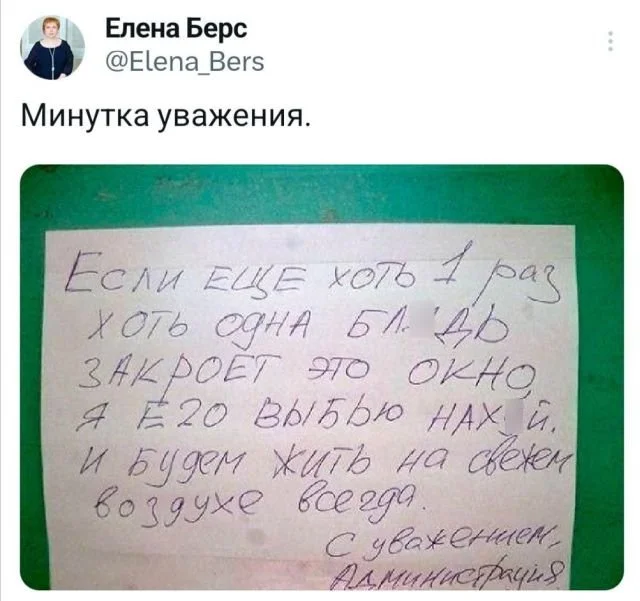 Елена Берс
@Elena_Bers
Минутка уважения.
Если ЕЩЕ хоть 1 раз
хоть одна БЛ ДЬ
ЗАКРОЕТ это окно,
я Его ВЫБЬЮ НАХ Й.
И Будем Жить на свежем
воздухе всегда.
С уважением,
Администрация